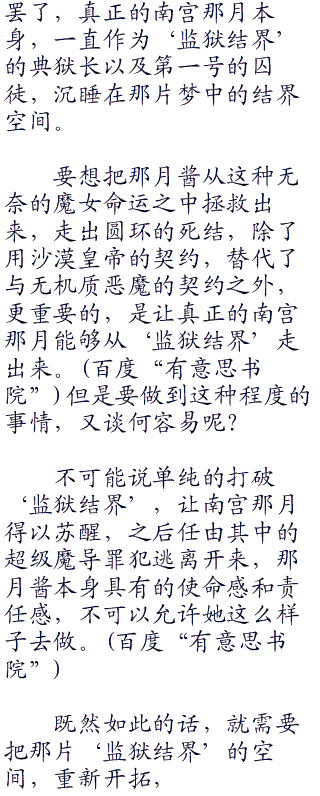 罢了，真正的南宫那月本
身，一直作为‘监狱结界’
的典狱长以及第一号的囚
徒，沉睡在那片梦中的结界
空间。
要想把那月酱从这种无
奈的魔女命运之中拯救出
来，走出圆环的死结，除了
用沙漠皇帝的契约，替代了
与无机质恶魔的契约之外，
更重要的，是让真正的南宫
那月能够从‘监狱结界’走
出来。(百度“有意思书
院”)但是要做到这种程度的
事情，又谈何容易呢？
不可能说单纯的打破
‘监狱结界’，让南宫那月
得以苏醒，之后任由其中的
超级魔导罪犯逃离开来，那
月酱本身具有的使命感和责
任感，不可以允许她这么样
子去做。(百度“有意思书
院”)
既然如此的话，就需要
把那片‘监狱结界’的空
间，重新开拓，